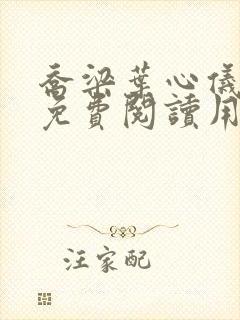 喬梁葉心儀
免費閱讀用
汪家配